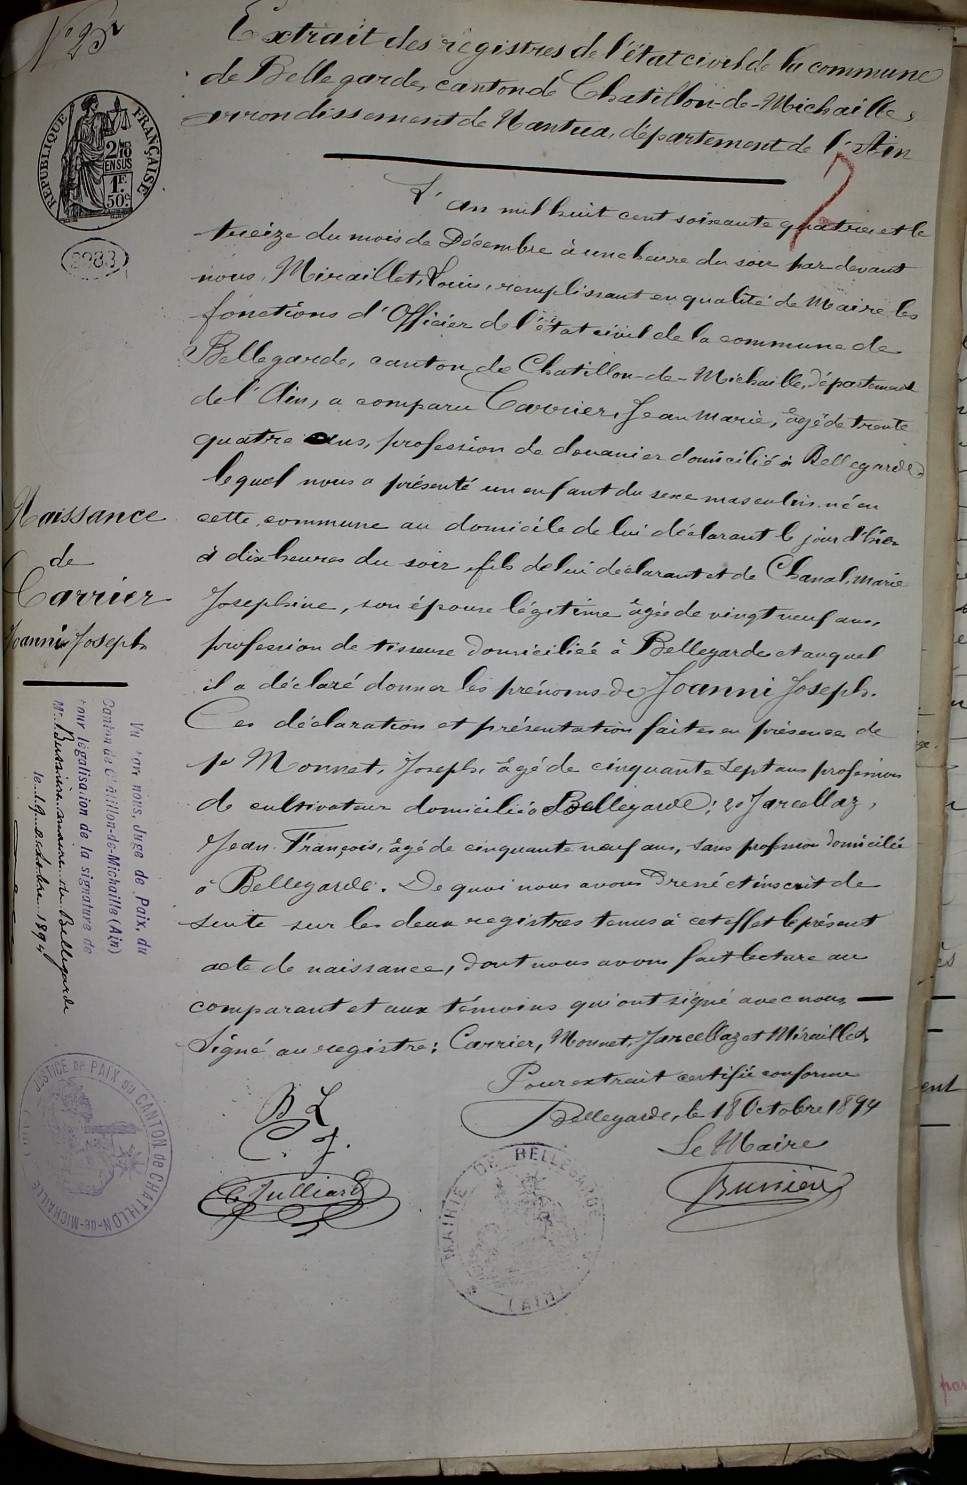 N° 25
Extrait des registres de l'état civil de la commune
de Bellegarde, canton de Chatillon-de-Michaille,
arrondissement de Nantua, département de l'Ain
RÉPUBLIQUE FRANÇAISE
2/10
EN SUS
1F
50c
2983
L'an mil huit cent soixante quatre et le
treize du mois de Décembre à une heure du soir par devant
nous, Miraillet, Louis, remplissant en qualité de Maire les
fonctions d'Officier de l'état civil de la commune de
Bellegarde, canton de Chatillon-de-Michaille, département
de l'Ain, a comparu Carrier, Jean Marie, âgé de trente
quatre ans, profession de douanier domicilié à Bellegarde
lequel nous a présenté un enfant du sexe masculin né en
cette commune au domicile de lui déclarant le jour d'hier
à dix heures du soir, fils de lui déclarant et de Chanal, Marie
Josephine, son épouse légitime âgée de vingt neuf ans,
profession de tisseuse domiciliée à Bellegarde et auquel
il a déclaré donner les prénoms de Joanni Joseph.
Ces déclaration et présentation faites en présence de
1° Monnet, Joseph, âgé de cinquante sept ans profession
de cultivateur domicilié à Bellegarde; 2° Jarcellaz,
Jean François, âgé de cinquante neuf ans, sans profession domicilié
à Bellegarde. De quoi nous avons dressé et inscrit de
suite sur les deux registres tenus à cet effet le présent
acte de naissance, dont nous avons fait lecture au
comparant et aux témoins qui ont signé avec nous.
Signé au registre: Carrier, Monnet, Jarcellaz et Miraillet
Pour extrait certifié conforme
Bellegarde, le 18 Octobre 1894
Le Maire
Bussière
C. J.
Julliard
Naissance
de
Carrier
Joanni Joseph
Vu par nous, Juge de Paix, du
Canton de Châtillon-de-Michaille (Ain)
pour légalisation de la signature de
Mr. Bussière maire de Bellegarde
le 19 octobre 1894
JUSTICE DE PAIX DU CANTON de CHATILLON-de-MICHAILLE (AIN)
MAIRIE DE BELLEGARDE (AIN)